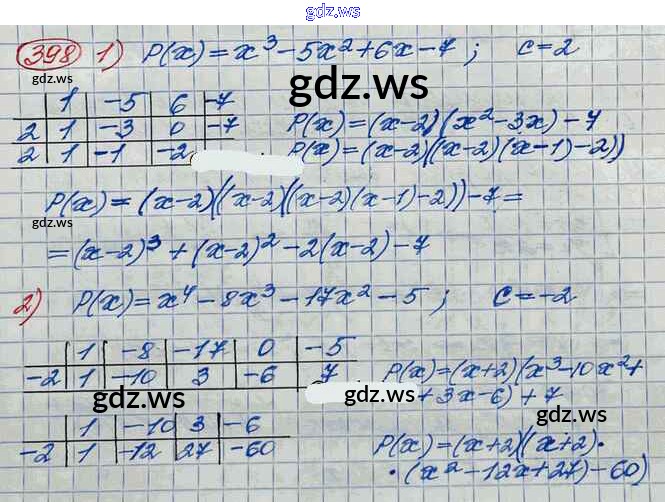 gdz.ws
398 1) P(x) = x³ - 5x² + 6x - 7 ; c = 2
gdz.ws
gdz.ws
1 -5 6 -7
2 1 -3 0 -7 P(x) = (x-2)(x² - 3x) - 7
2 1 -1 -2 P(x) = (x-2)((x-2)(x-1) - 2))
P(x) = (x-2)((x-2)((x-2)(x-1) - 2)) - 7 =
gdz.ws
gdz.ws
= (x-2)³ + (x-2)² - 2(x-2) - 7
2) P(x) = x⁴ - 8x³ - 17x² - 5 ; c = -2
1 -8 -17 0 -5
-2 1 -10 3 -6 7 P(x) = (x+2)(x³ - 10x² +
+ 3x - 6) + 7
gdz.ws
gdz.ws
1 -10 3 -6
-2 1 -12 27 -60 P(x) = (x+2)((x+2)·
·(x² - 12x + 27) - 60)
gdz.ws